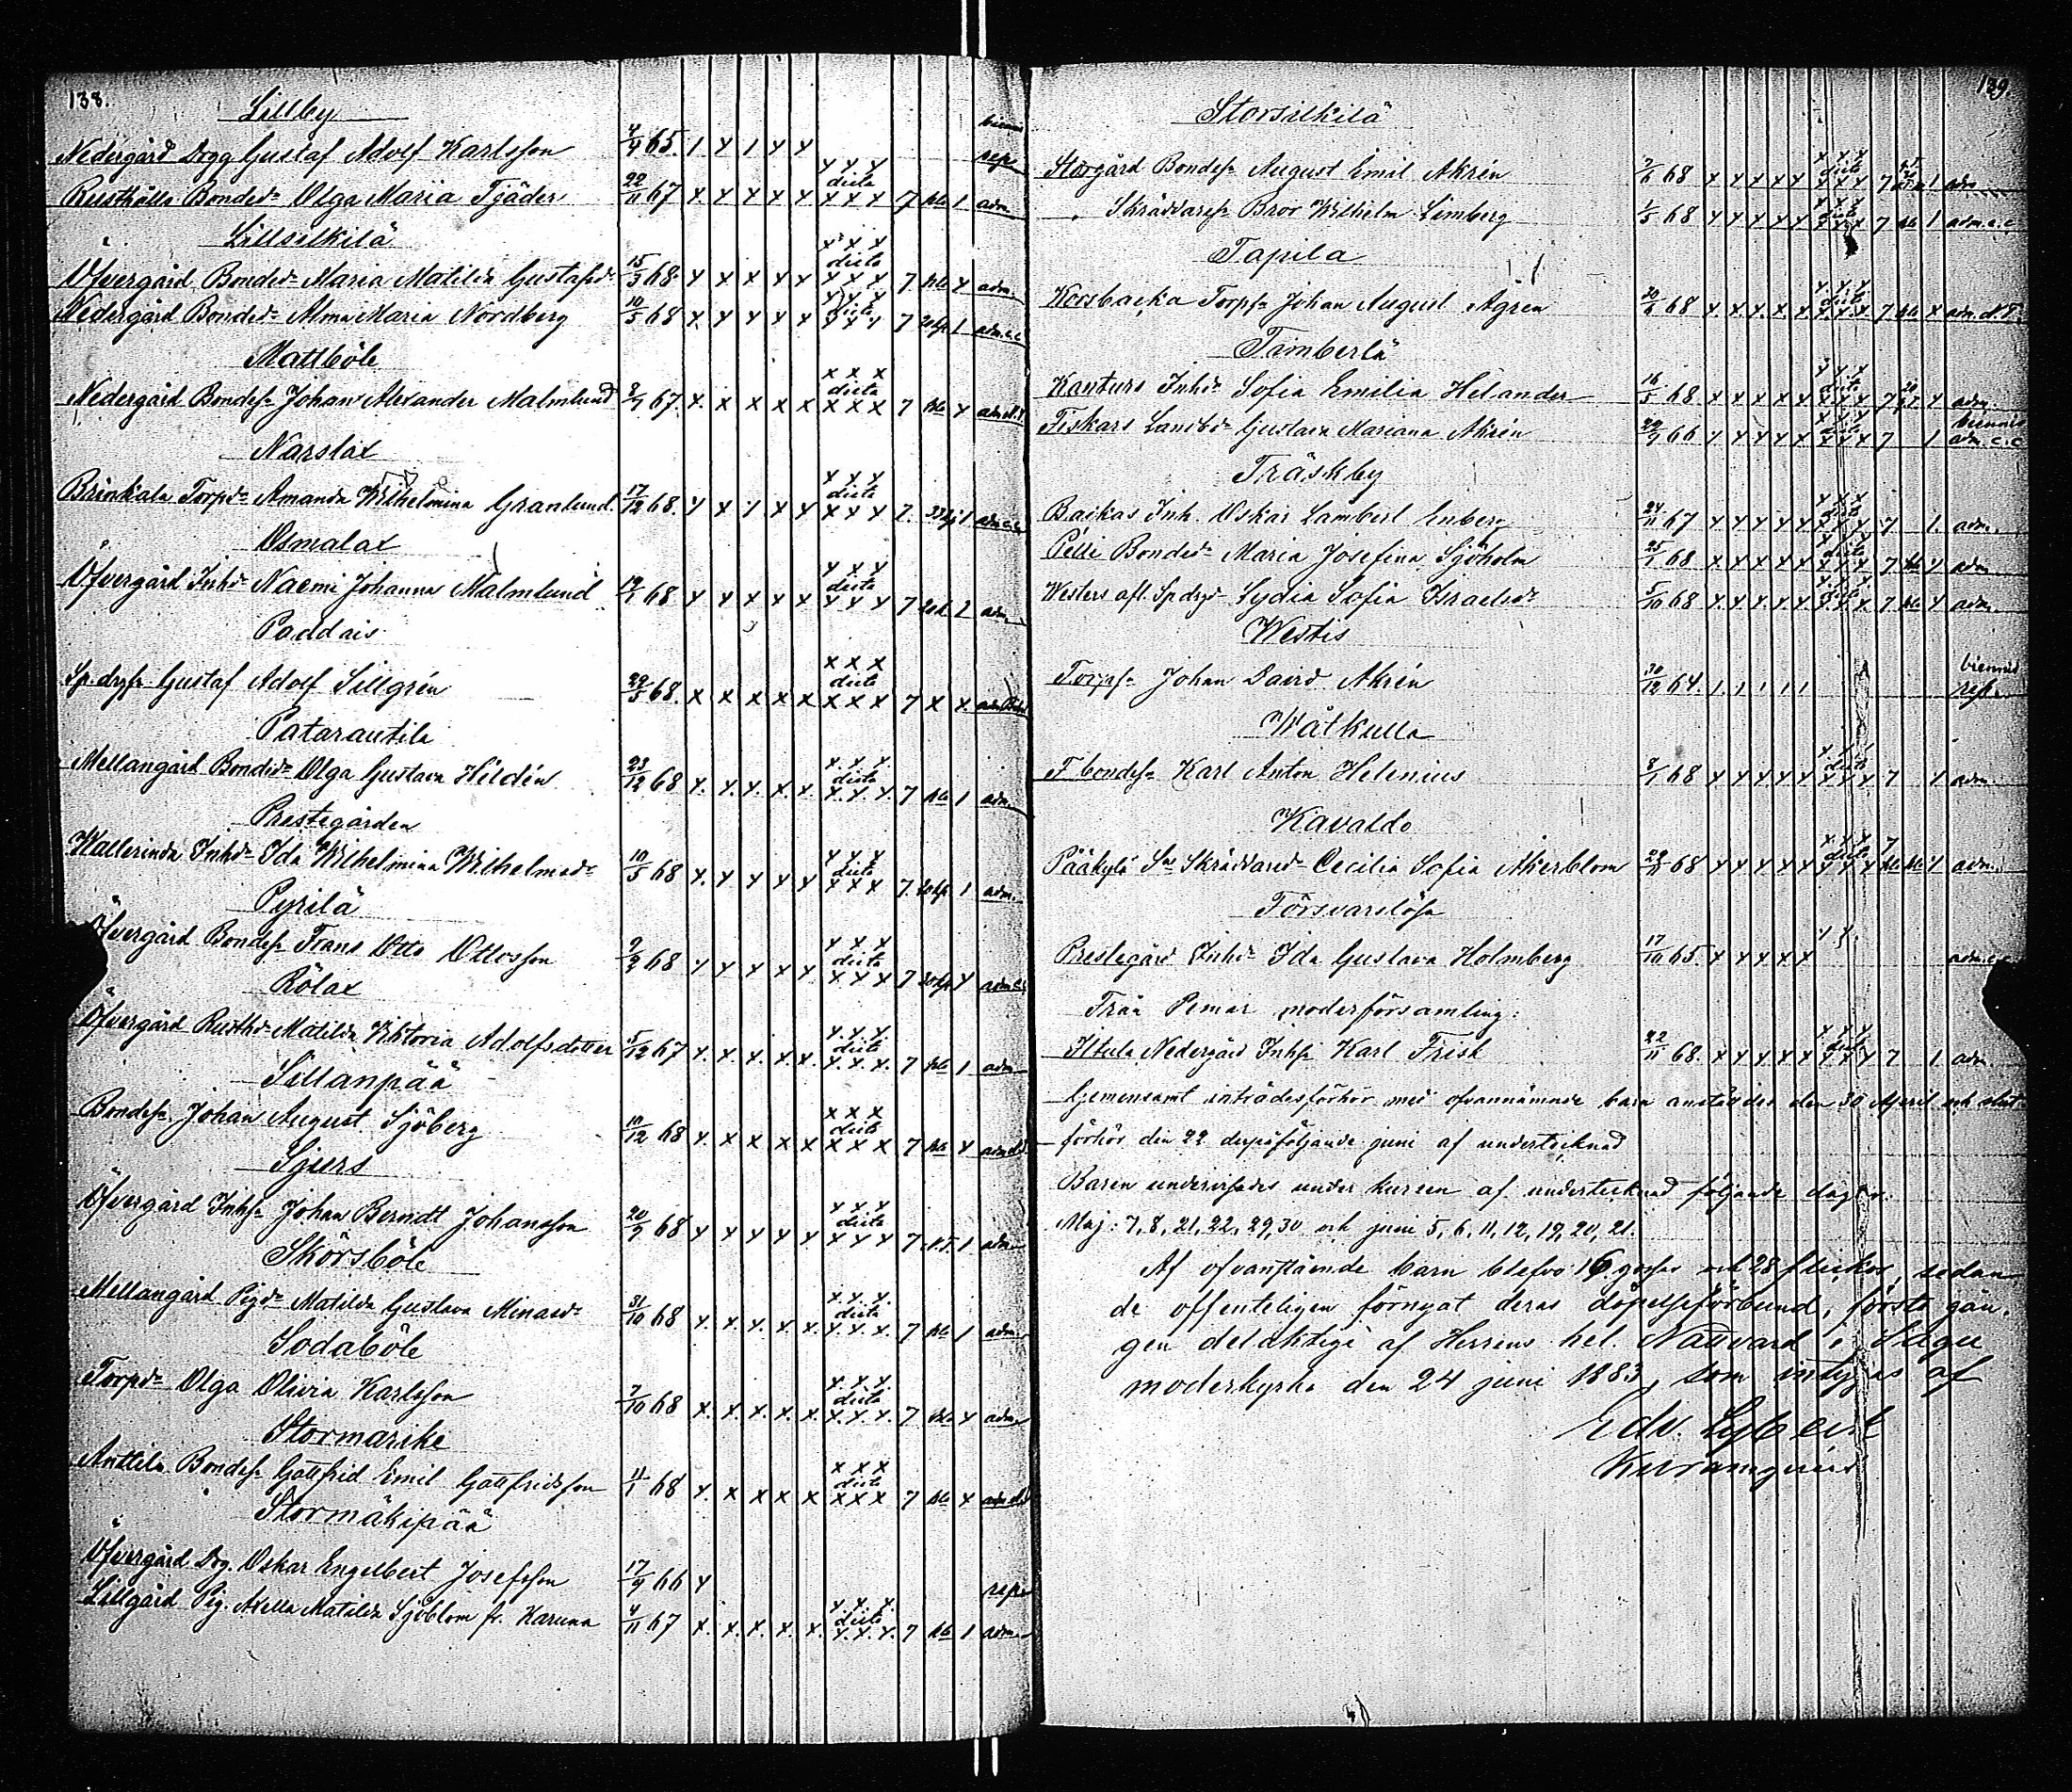 138.
Lillby
Nedergård Dqg Gustaf Adolf Karlsson 4/4 65. 1 x 1 x x rep.
x x x
Rusthålls Bonded. Olga Maria Tjäder 22/11 67 x x x x x dicto x x x 7 1 adm.
Lillsilkilä
x x x
Öfvergård Bonded. Maria Matilda Gustafsd. 15/3 68. x x x x x dicto x x x 7 x adm.
Nedergård Bonded. Alma Maria Nordberg 10/5 68 x x x x x dicto x x x 7 1 adm. c.c
Mattböle
x x x
Nedergård Bondes. Johan Alexander Malmlund 67. x. x x x x dicto x x x 7 x
Narslax
x x x
Brinkala Torpd. Amanda Wilhelmina Granlund. 17/12 68. x x x x x dicto x x x 7. 1
Osmalax
x x x
Öfvergård Inhd. Naemi Johanna Malmlund 19/1 68 x x x x x dicto x x x 7 2 adm.
Paddais
x x x
Sp.drgs. Gustaf Adolf Sillgrén 29/5 68. x x x x x dicto x x x 7 x x.
Patarautila
x x x
Mellangård Bonded. Olga Gustava Hildén 23/12 68 x. x. x. x. x. dicto x. x. x. 7 1 adm.
Prestegården
x x x
Wallerinda Inhd. Ida Wilhelmina Wilhelmsd. 10/5 68 x. x x x x dicto x x x 7. 1 adm.
Pyrilä
x x x
Öfvergård Bondes. Frans Otto Ottosson 9/2 68 x x x x x dicto x x x 7 x
Rölax
x. x. x
Öfvergård Rusthd. Matilda Viktoria Adolfsdotter 5/12 67 x. x. x. x. x. dicto x. x. x. 7 1 adm.
Sillanpää
x x x
Bondes. Johan August Sjöberg 10/12 68 x. x x x x dicto x x x 7 x
Sjurs
x x x
Öfvergård Inhs. Johan Berndt Johansson 20/9 68 x x x x x dicto x x x 7 1 adm.
Skörsböle
x. x. x.
Mellangård Pigd. Matilda Gustava Minasd. 31/10 68 x. x. x. x. x. dicto x. x. x. 7 1 adm.
Sodaböle
x. x. x.
Torpd. Olga Olivia Karlsson 7/10 68 x. x. x. x. x. dicto x. x. x. 7 x adm.
Stormarike
x x x
Anttila Bondes. Gottfrid Emil Gottfridsson 11/1 68 x. x x x x dicto x x x 7 x
Stormäkipää
Öfvergård Dg. Oskar Engelbert Josefsson 17/9 66 x rep.
x. x. x.
Lillgård Pig. Matilda Sjöblom fr. Karuna 4/11 67 x. x. x. x. x. dicto x. x. x. 7 1 adm.
139.
Storsilkilä
Storgård Bondes. August Emil Akrén 7/6 68 x x x x x dicto x x x 7 1 adm.
Skräddares. Bror Wilhelm Limberg 1/5 68 x x x x x dicto 7 1 adm. c.c
Tapila
Korsbacka Torps. Johan August Ågren 68 x x x x x dicto x x x 7 x
Timberlä
Kanturs Inhd. Sofia Emilia Helander 16/5 68 x x x x x dicto x x x 7 x adm.
biennis
Fiskars Landbd. Gustava Mariana Akrén 29/9 66 x x x x x x x x 7 1 adm. c.c
Träskby
Backas Inh. Oskar Lambert Enberg 24/11 67 x x x x x 7 1. adm.
Pelli Bonded. Maria Josefina Sjöholm 25/1 68 x x x x x dicto x x x 7 x adm.
Westers afl. Sp.drgd. Lydia Sofia Israelsd. 5/10 68 x x x x x x x x 7 x adm.
Westis
biennis
Torps. Johan David Akrén 30/12 64. 1. 1 1 1 1 rep.
Wåtkulla
F. bondes. Karl Anton Helenius 8/1 68 x x x x x x x x 7 x adm.
Kavaldo
Pääkylä Skräddared. Cecilia Sofia Åkerblom 68 x x x x x dicto x x x 1 adm.
Försvarslösa
Prestegård Inhd. Ida Gustava Holmberg 17/10 65. x x x x x
Från Pemar moderförsamling:
Iltula Nedergård Inhs. Karl Frisk 22/11 68. x x x x x dicto x x x 7 1 adm.
Gemensamt inträdesförhör med ofvannämnde barn anställdes den 30 April och slut-
förhör den 22 derpåföljande juni af undertecknad
Barn undervisades under kursen af undertecknad följande dagar.
Maj: 7, 8, 21, 22, 29, 30 och juni 5, 6, 11, 12, 19, 20, 21.
Af ofvanstående barn blefvo 16 gossar och 28 flickor, sedan
de offenteligen förnyat deras döpelseförbund, första gån-
gen delaktiga af Herrens hel. Nattvard i Sagu
moderkyrka den 24 juni 1883, som intygas af
Edv.